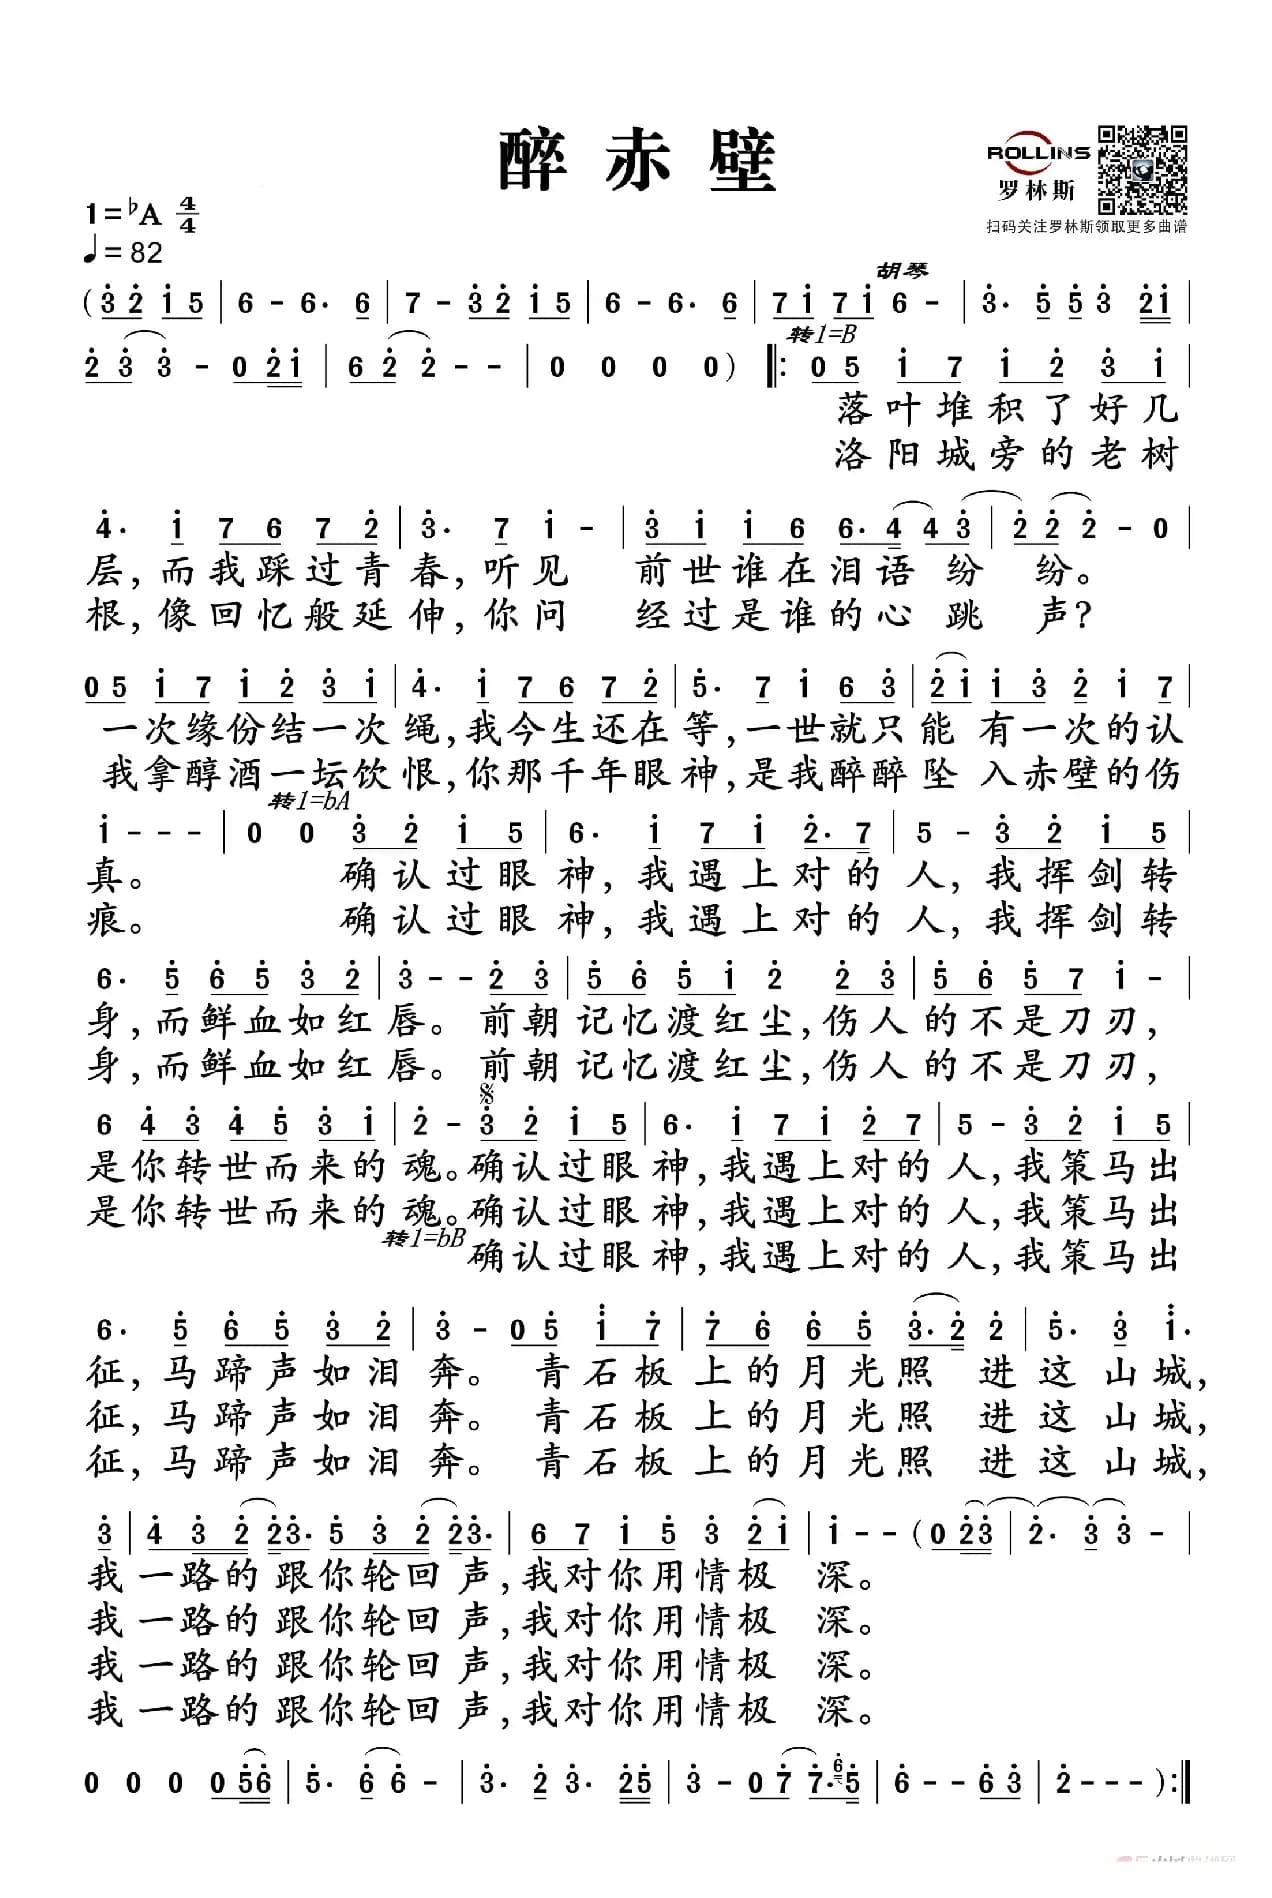 醉赤壁
ROLLINS
罗林斯
扫码关注罗林斯领取更多曲谱
1=♭A 4/4
♩=82
胡琴
(3 2 1 5 | 6 - 6· 6 | 7 - 3 2 1 5 | 6 - 6· 6 | 7 1 7 1 6 - | 3· 5 5 3 2 1 |
转1=B
2 3 3 - 0 2 1 | 6 2 2 - - | 0 0 0 0) ‖: 0 5 1 7 1 2 3 1 |
落叶堆积了好几
洛阳城旁的老树
4· 1 7 6 7 2 | 3· 7 1 - | 3 1 1 6 6· 4 4 3 | 2 2 2 - 0 |
层,而我踩过青春,听见 前世谁在泪语纷 纷。
根,像回忆般延伸,你问 经过是谁的心跳 声?
0 5 1 7 1 2 3 1 | 4· 1 7 6 7 2 | 5· 7 1 6 3 | 2 1 1 3 2 1 7 |
一次缘份结一次绳,我今生还在等,一世就只能 有一次的认
我拿醇酒一坛饮恨,你那千年眼神,是我醉醉坠 入赤壁的伤
转1=bA
1 - - - | 0 0 3 2 1 5 | 6· 1 7 1 2· 7 | 5 - 3 2 1 5 |
真。 确认过眼神,我遇上对的人,我挥剑转
痕。 确认过眼神,我遇上对的人,我挥剑转
6· 5 6 5 3 2 | 3 - - 2 3 | 5 6 5 1 2 2 3 | 5 6 5 7 1 - |
身,而鲜血如红唇。 前朝记忆渡红尘,伤人的不是刀刃,
身,而鲜血如红唇。 前朝记忆渡红尘,伤人的不是刀刃,
6 4 3 4 5 3 1 | 2 - 3 2 1 5 | 6· 1 7 1 2 7 | 5 - 3 2 1 5 |
是你转世而来的魂。确认过眼神,我遇上对的人,我策马出
是你转世而来的魂。确认过眼神,我遇上对的人,我策马出
转1=bB
确认过眼神,我遇上对的人,我策马出
6· 5 6 5 3 2 | 3 - 0 5 1 7 | 7 6 6 5 3· 2 2 | 5· 3 1·
征,马蹄声如泪奔。 青石板上的月光照 进这山城,
征,马蹄声如泪奔。 青石板上的月光照 进这山城,
征,马蹄声如泪奔。 青石板上的月光照 进这山城,
3 | 4 3 2 2 3· 5 3 2 2 3· | 6 7 1 5 3 2 1 | 1 - - (0 2 3 | 2· 3 3 - |
我一路的跟你轮回声,我对你用情极 深。
我一路的跟你轮回声,我对你用情极 深。
我一路的跟你轮回声,我对你用情极 深。
我一路的跟你轮回声,我对你用情极 深。
0 0 0 0 5 6 | 5· 6 6 - | 3· 2 3· 2 5 | 3 - 0 7 7· 6 5 | 6 - - 6 3 | 2 - - -) :‖